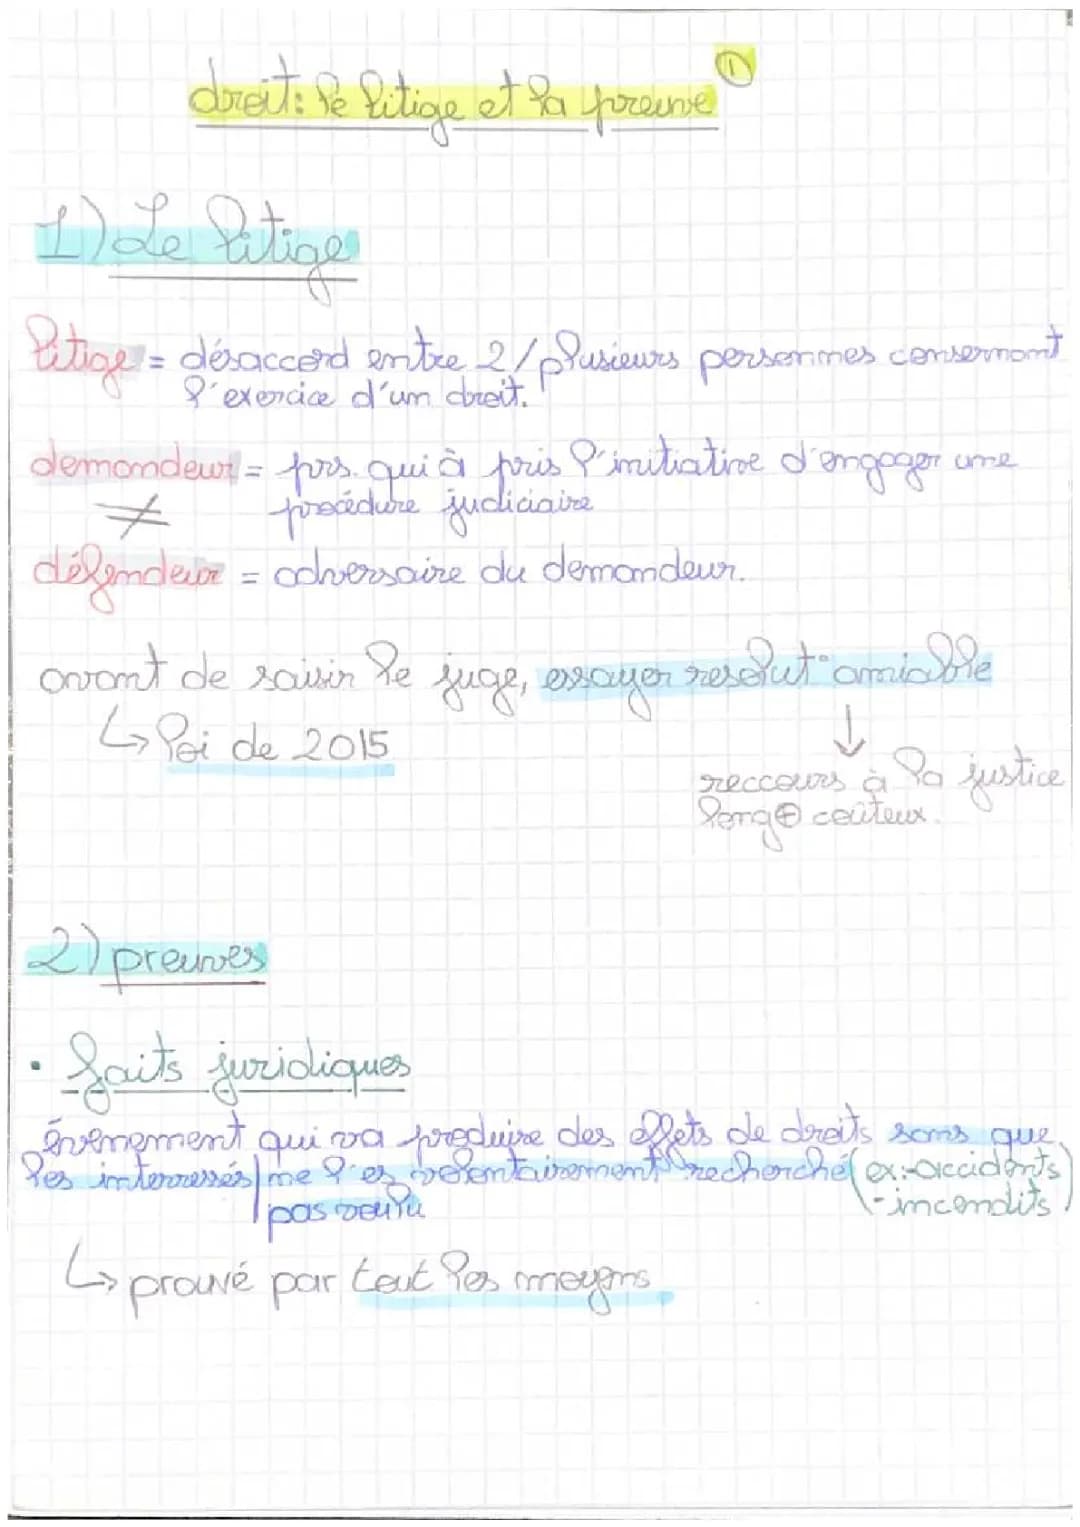 droit: le litige et la preuve ①
1) Le litige
litige = désaccord entre 2/plusieurs personnes consernant
l'exercice d'un droit.
demandeur = prs. qui à pris l'initiative d'engager une
≠ procédure judiciaire
défendeur = adversaire du demandeur.
avant de saisir le juge, essayer resolut° amiable
↳ loi de 2015 ↓
reccours à la justice
long ⊕ coûteux.
2) preuves
• faits juridiques
évenement qui va produire des effets de droits sans que
les interressés me l'es volontairement recherché (ex:-accidents
pas voulu -incendits)
↳ prouvé par tout les moyens